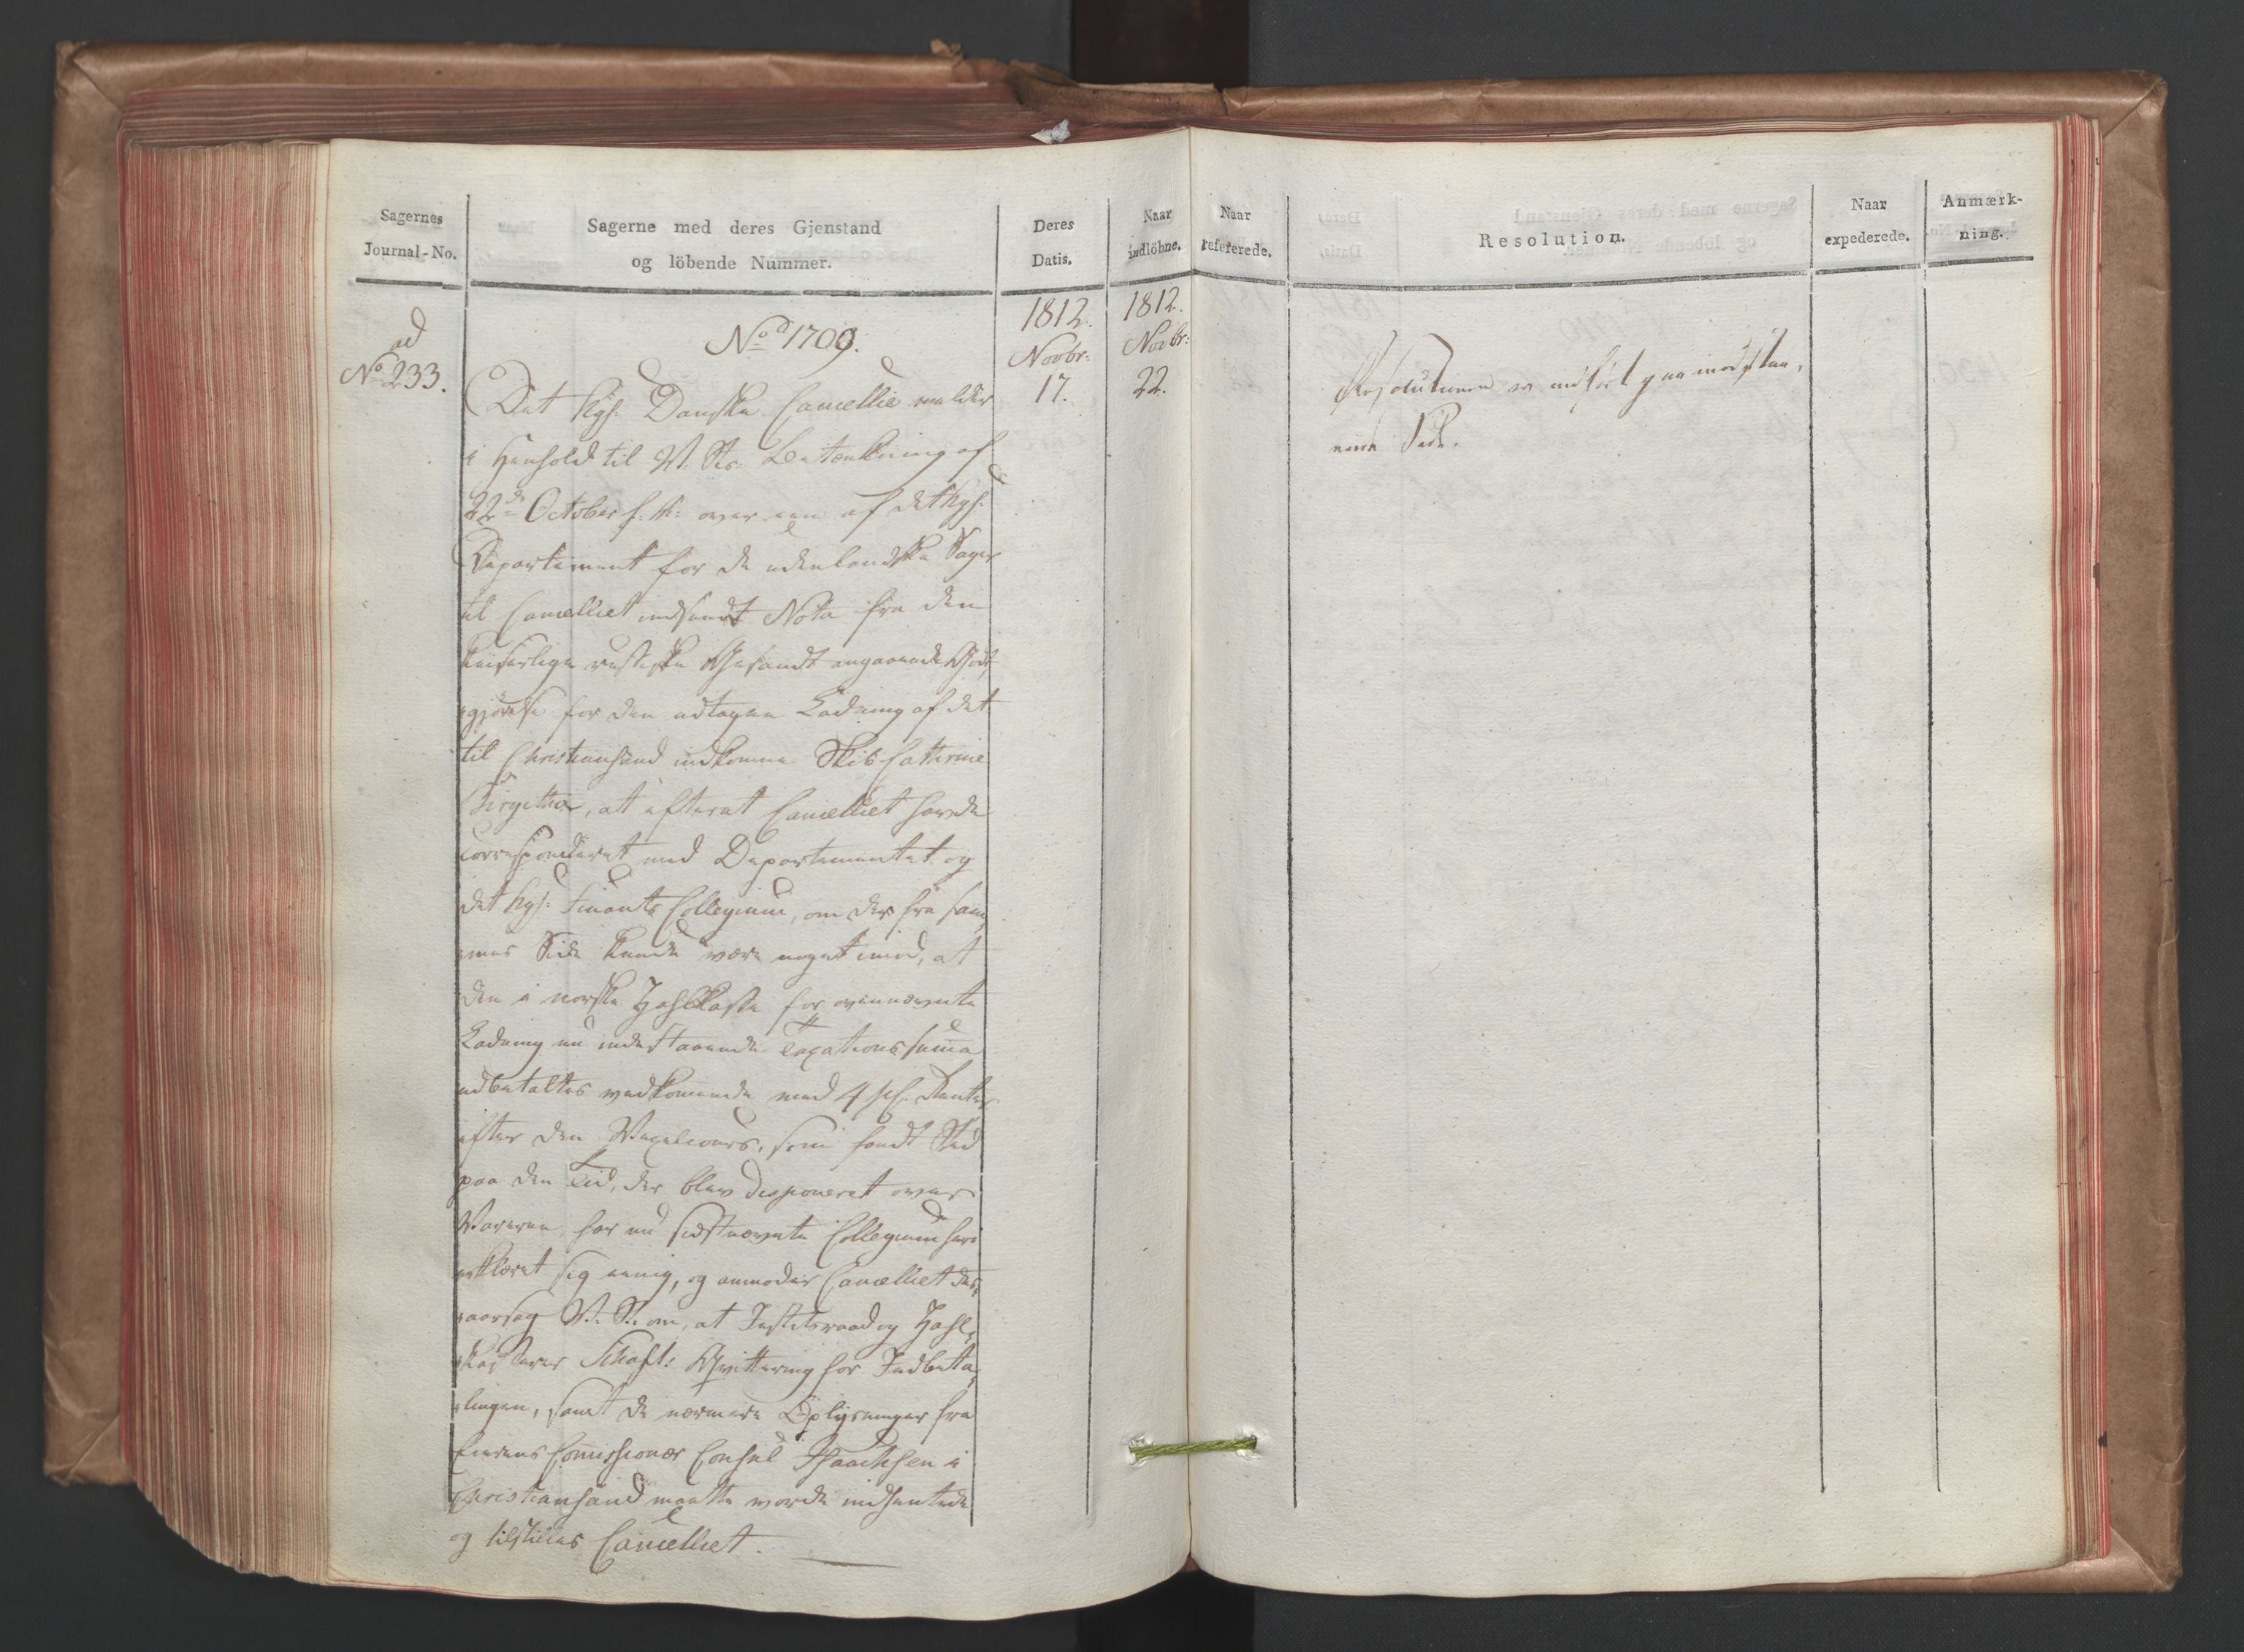 Sagernes
Journal-No.
Sagerne med deres Gjenstand
og löbende Nummer.
Deres
Datis.
Naar
indlöbne.
Naar
refererede.
Resolution.
Naar
expederede.
Anmærk-
ning.
ad
No 233.
No 1709.
1812.
Novbr:
17.
1812.
Novbr:
22.
Det kgl: Danske Cancellie melder
i Henhold til V. St: Betænkning af
22de October f: A: over een af det kgl:
Departement for de udenlandske Sager
til Cancelliet indsendt Nota fra den
keiserlige russiske Gesandt angaaende Godt,
gjørelse for den udtagne Ladning af det
til Christiansand indkomne Skib Cathrine
Birgitha, at efterat Cancelliet havde
correspouderet med Departementet og
det kgl: Finants Collegium, om der fra sam,
mes Side kunde være noget imod, at
den i norske Zahlkasse for ovennævnte
Ladning nu indestaaende Taxationssum̅a
udbetaltes vedkommende med 4 pC: Renter
efter den Vexelcours, som fandt Sted
paa den Tid, der blev disponeret over
Varerne, har nu sidstnævnte Collegium heri
erklæret sig eenig, og anmoder Cancelliet des,
aarsag V. St. om, at Justitsraad og Zahl,
kasserer Schafts Qvittering for Indbeta,
lingen, samt de nærmere Oplysninger fra
Eierens Com̅issionær Consul Isaachsen i
Christiansand maatte vorde indhentede
og tilstilles Cancelliet.
Resolutionen er anført paa modstaa,
ende Side.